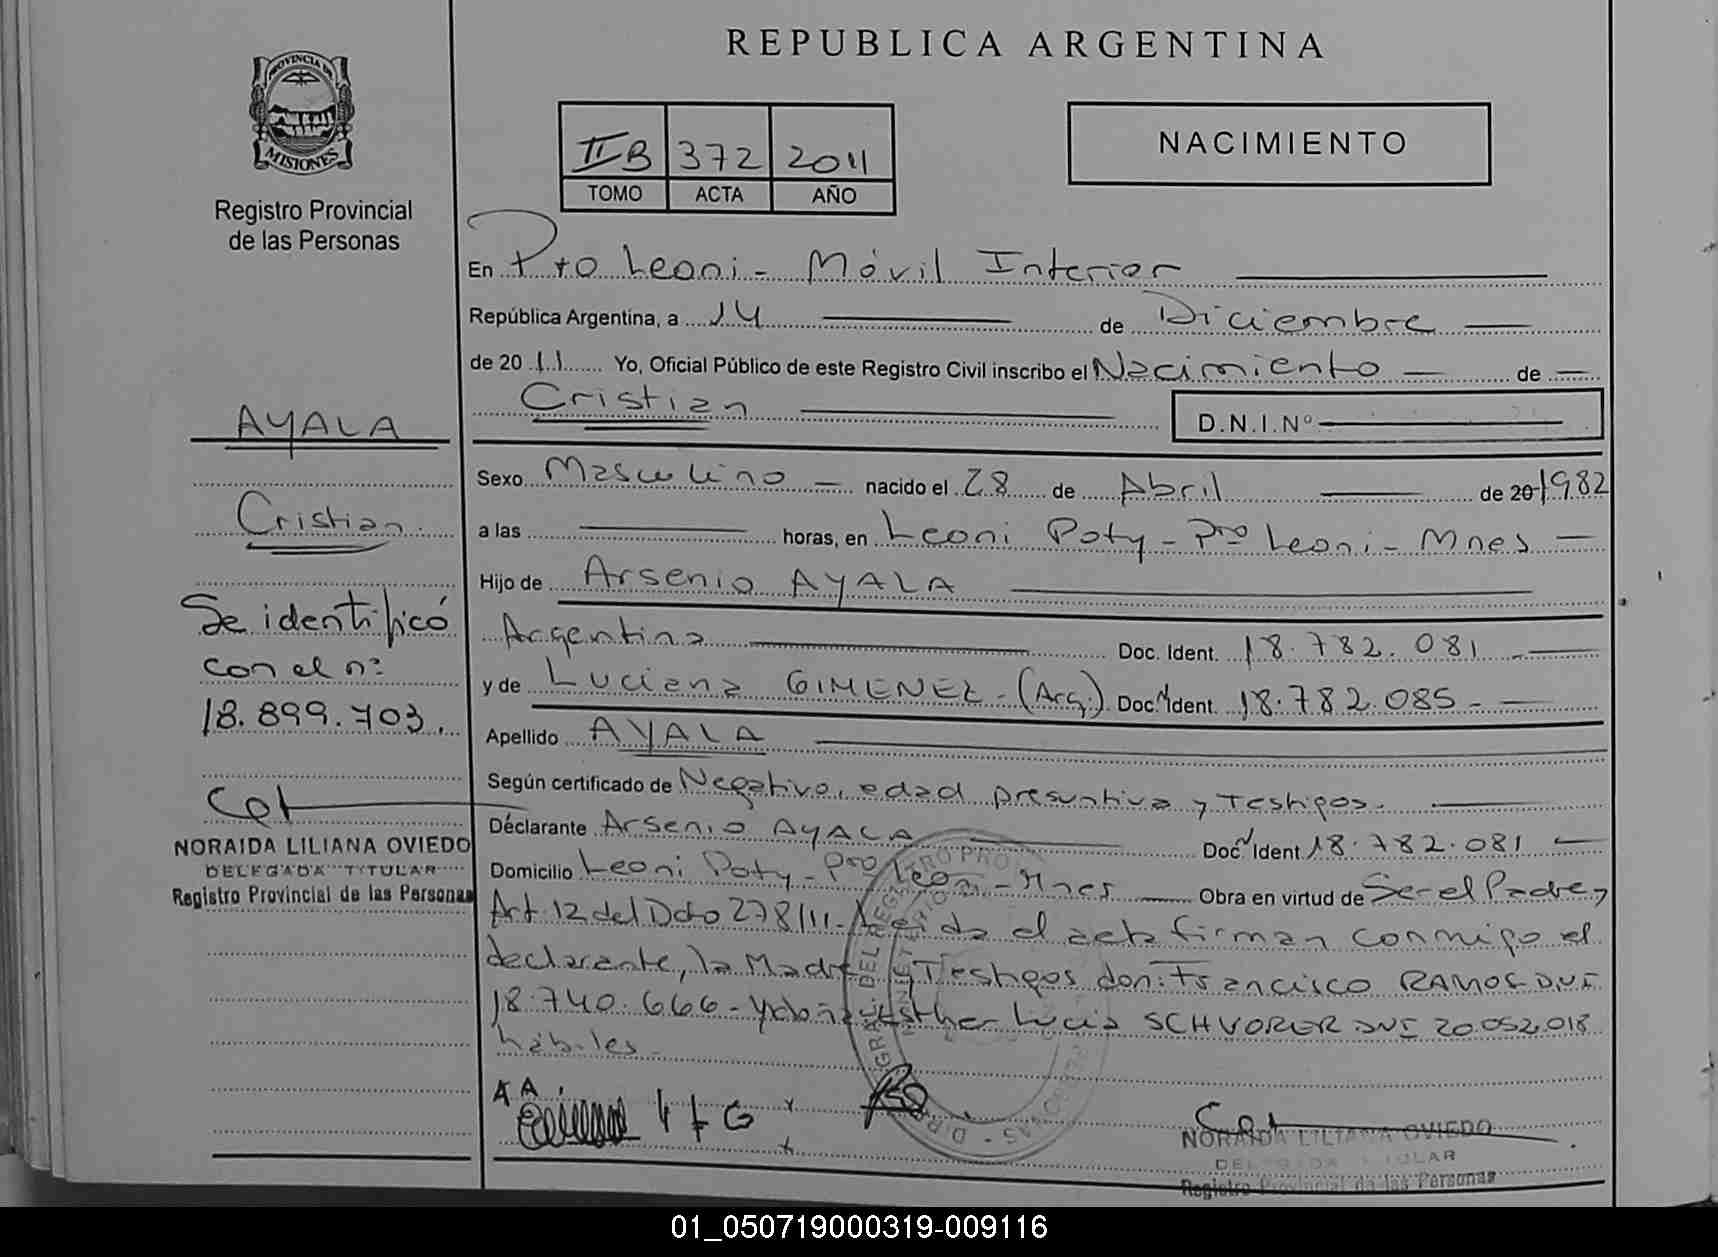 REPUBLICA ARGENTINA
PROVINCIA DE
MISIONES
Registro Provincial
de las Personas
II B 372 2011
TOMO ACTA AÑO
NACIMIENTO
En Pto Leoni - Móvil Interior
República Argentina, a 14 de Diciembre
de 20 11 Yo, Oficial Público de este Registro Civil inscribo el Nacimiento de
Cristian
D.N.I.Nº
AYALA
Cristian
Se identificó
con el nº
18.899.703.
NORAIDA LILIANA OVIEDO
DELEGADA TITULAR
Registro Provincial de las Personas
Sexo Masculino nacido el 28 de Abril de 20 1982
a las horas, en Leoni Poty - Pto Leoni - Mnes
Hijo de Arsenio AYALA
Argentina Doc. Ident. 18.782.081
y de Luciana GIMENEZ - (Arg.) Doc. Ident. 18.782.085 -
Apellido AYALA
Según certificado de Negativo, edad presuntiva y Testigos.
Declarante Arsenio AYALA Doc. Ident 18.782.081
Domicilio Leoni Poty - Pto Leoni - Mnes Obra en virtud de Ser el Padre y
Art. 12 del Dcto 278/11. Leida el acta firman conmigo el
declarante, la Madre y Testigos don: Francisco RAMOS D.N.I
18.740.666 - y doña Esther Lucia SCHVORER DNI 20.052.018
hábiles.
A A.
L G
NORAIDA LILIANA OVIEDO
DELEGADA TITULAR
Registro Provincial de las Personas
01_050719000319-009116